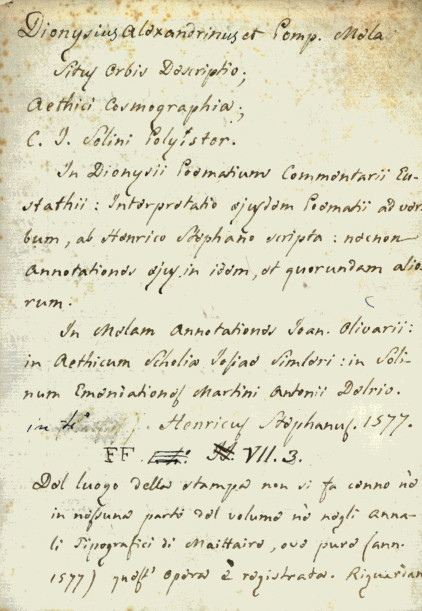 Dionysius Alexandrinus et Pomp. Mela
Situs Orbis Descriptio;
Aethici Cosmographia;
C. J. Solini Polyistor.
In Dionysii Poematium Commentarii Eu-
stathii: Interpretatio ejusdem Poematii ad ver-
bum, ab Henrico Stephano scripta: necnon
Annotationes ejus in idem, et quorundam alio-
rum.
In Melam Annotationes Joan. Olivarii:
in Aethicum Scholia Josiae Simleri: in Soli-
num Emendationes Martini Antonii Delrio.
in 4°
Henricus Stephanus. 1577.
FF VII. 3.
Del luogo della stampa non si fa cenno nè
in nessuna parte del volume nè negli Anna-
li Tipografici di Maittaire, ove pure (ann.
1577) quest' Opera è registrata. Riguardan